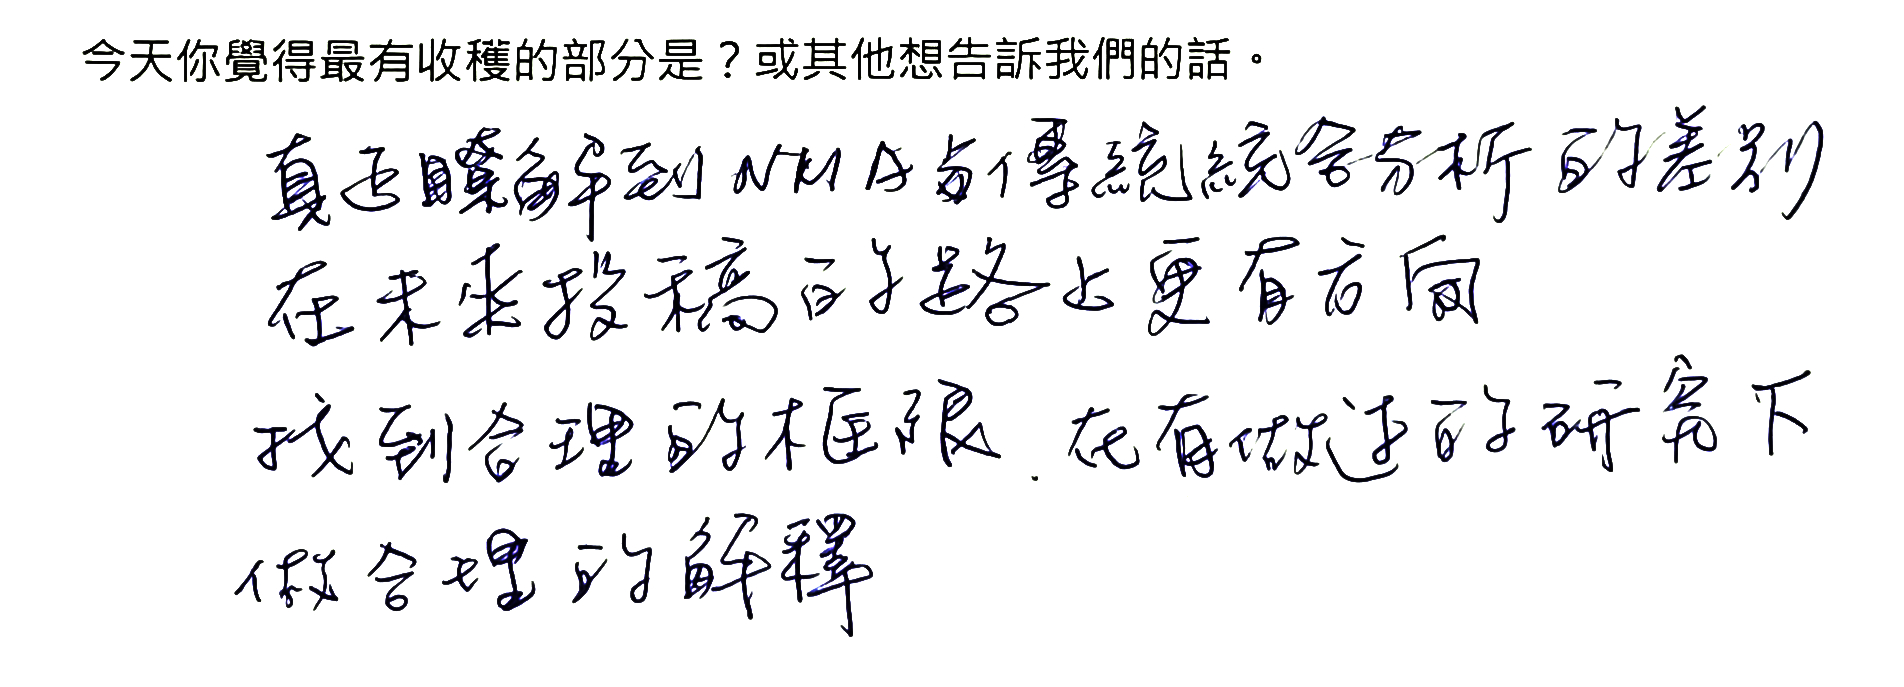 今天你覺得最有收穫的部分是？或其他想告訴我們的話。
真正瞭解到NMA与傳統統合分析的差別
在未來投稿的路上更有方向
找到合理的框限.在有做过的研究下
做合理的解釋